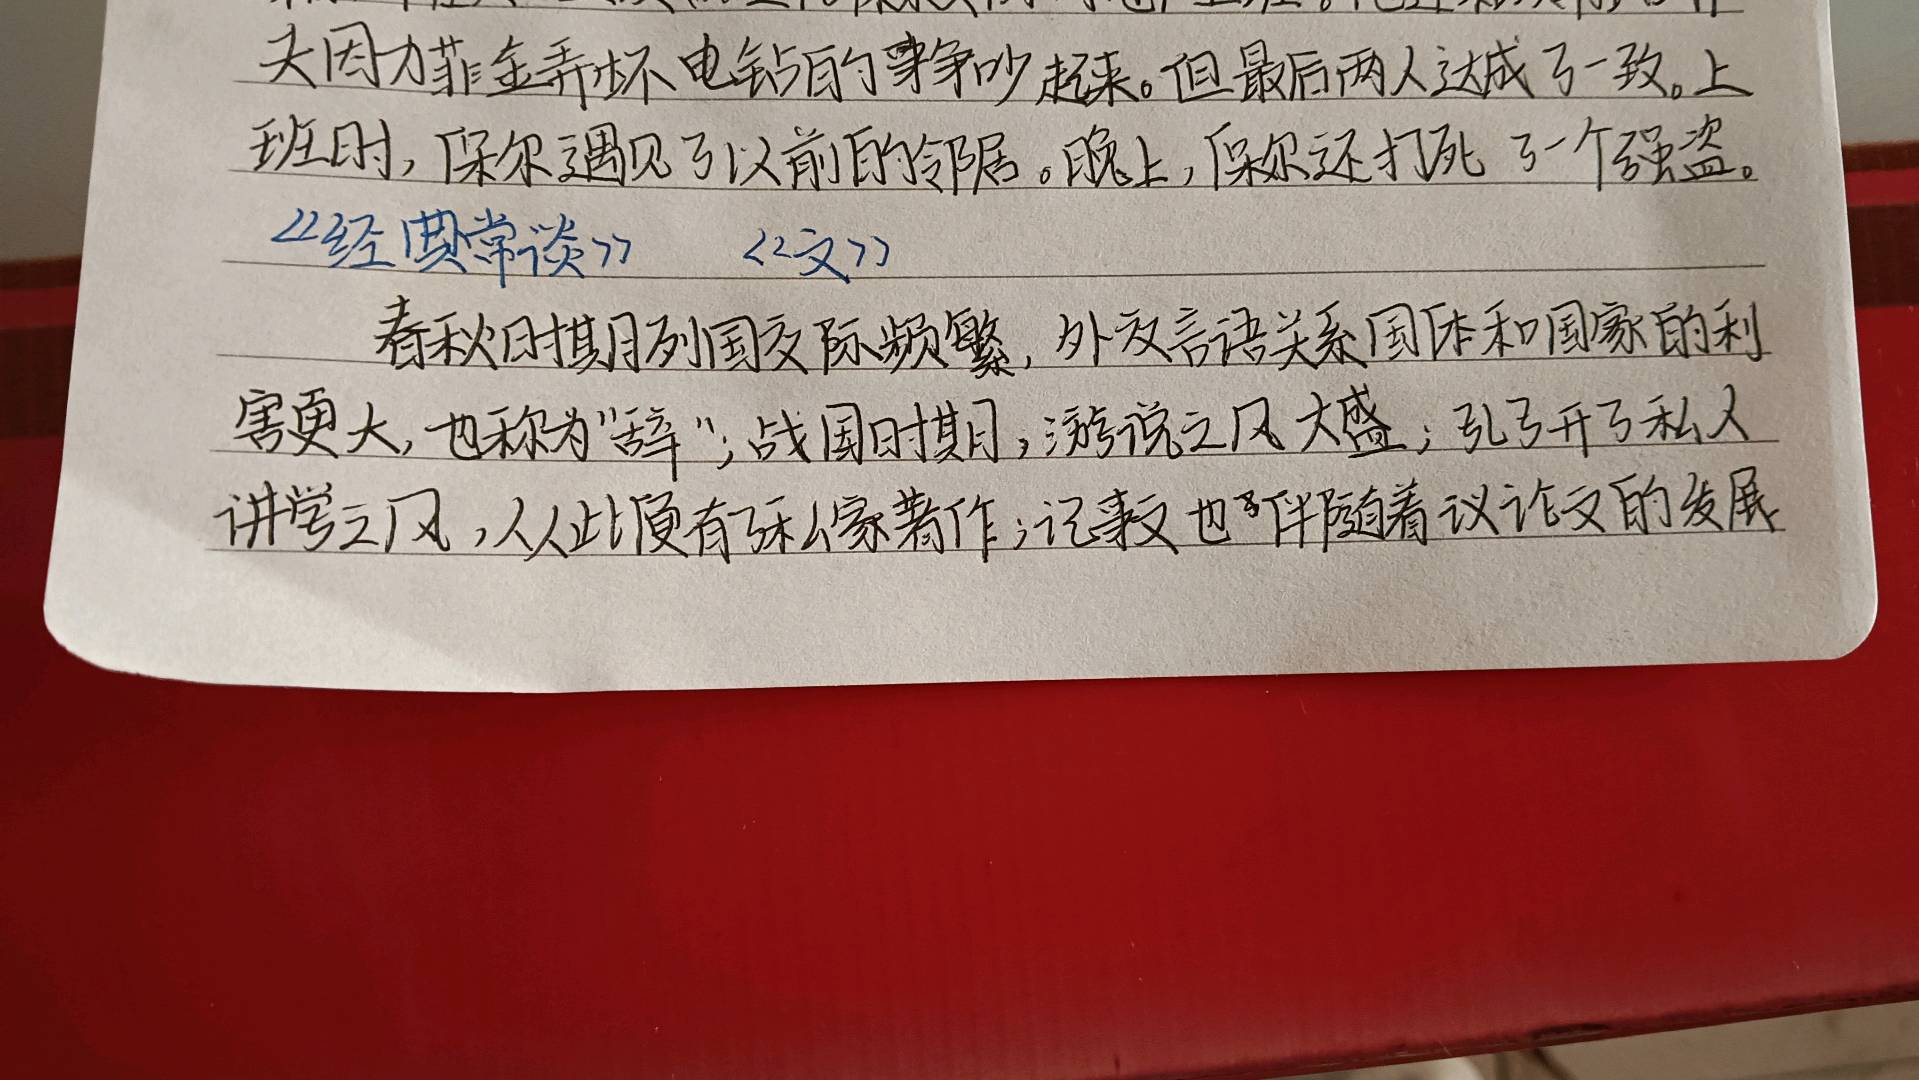 夫因为菲金弄坏电钻的事争吵起来。但最后两人达成了一致。上
班时，保尔遇见了以前的邻居。晚上，保尔还打死了一个强盗。
《经典常谈》 《文》
春秋时期列国交际频繁，外交言语关系国体和国家的利
害更大，也称为“辞”；战国时期，游说之风大盛；孔子开了私人
讲学之风，从此便有了私家著作；记事文也伴随着议论文的发展